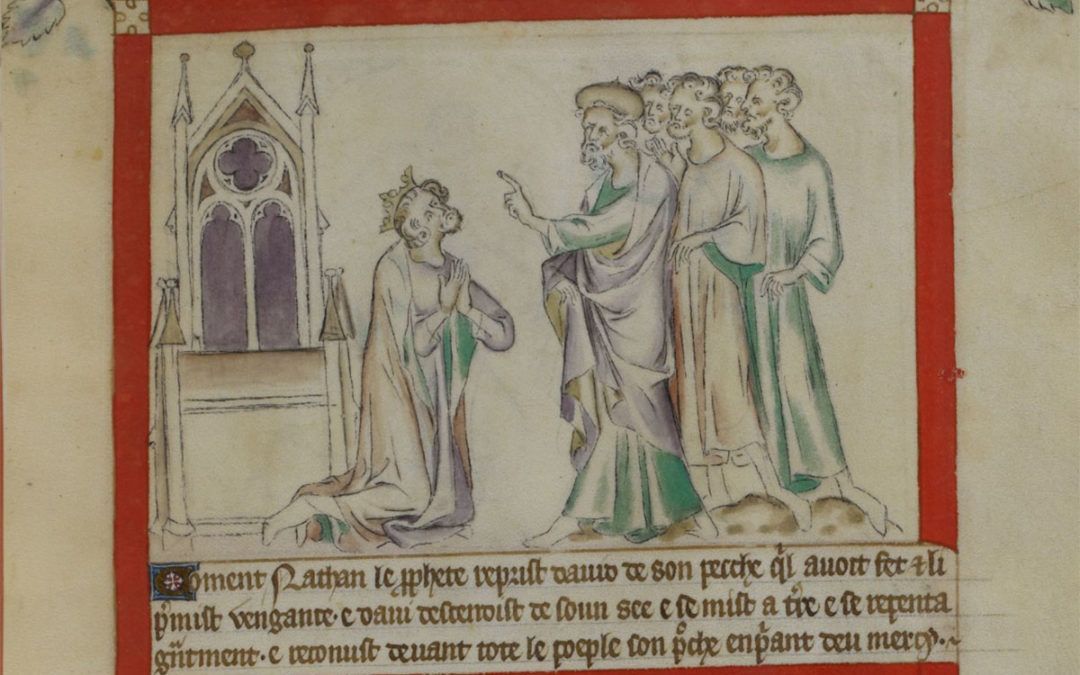 Coment Nathan le pphete reprist david de son pecche ql avoit fet ⁊ li
pmist vengance · e davi descendist de soun see e se mist a tre e se repenta
gntment · e reconust devant tote le poeple son pche enpant deu mercy ·